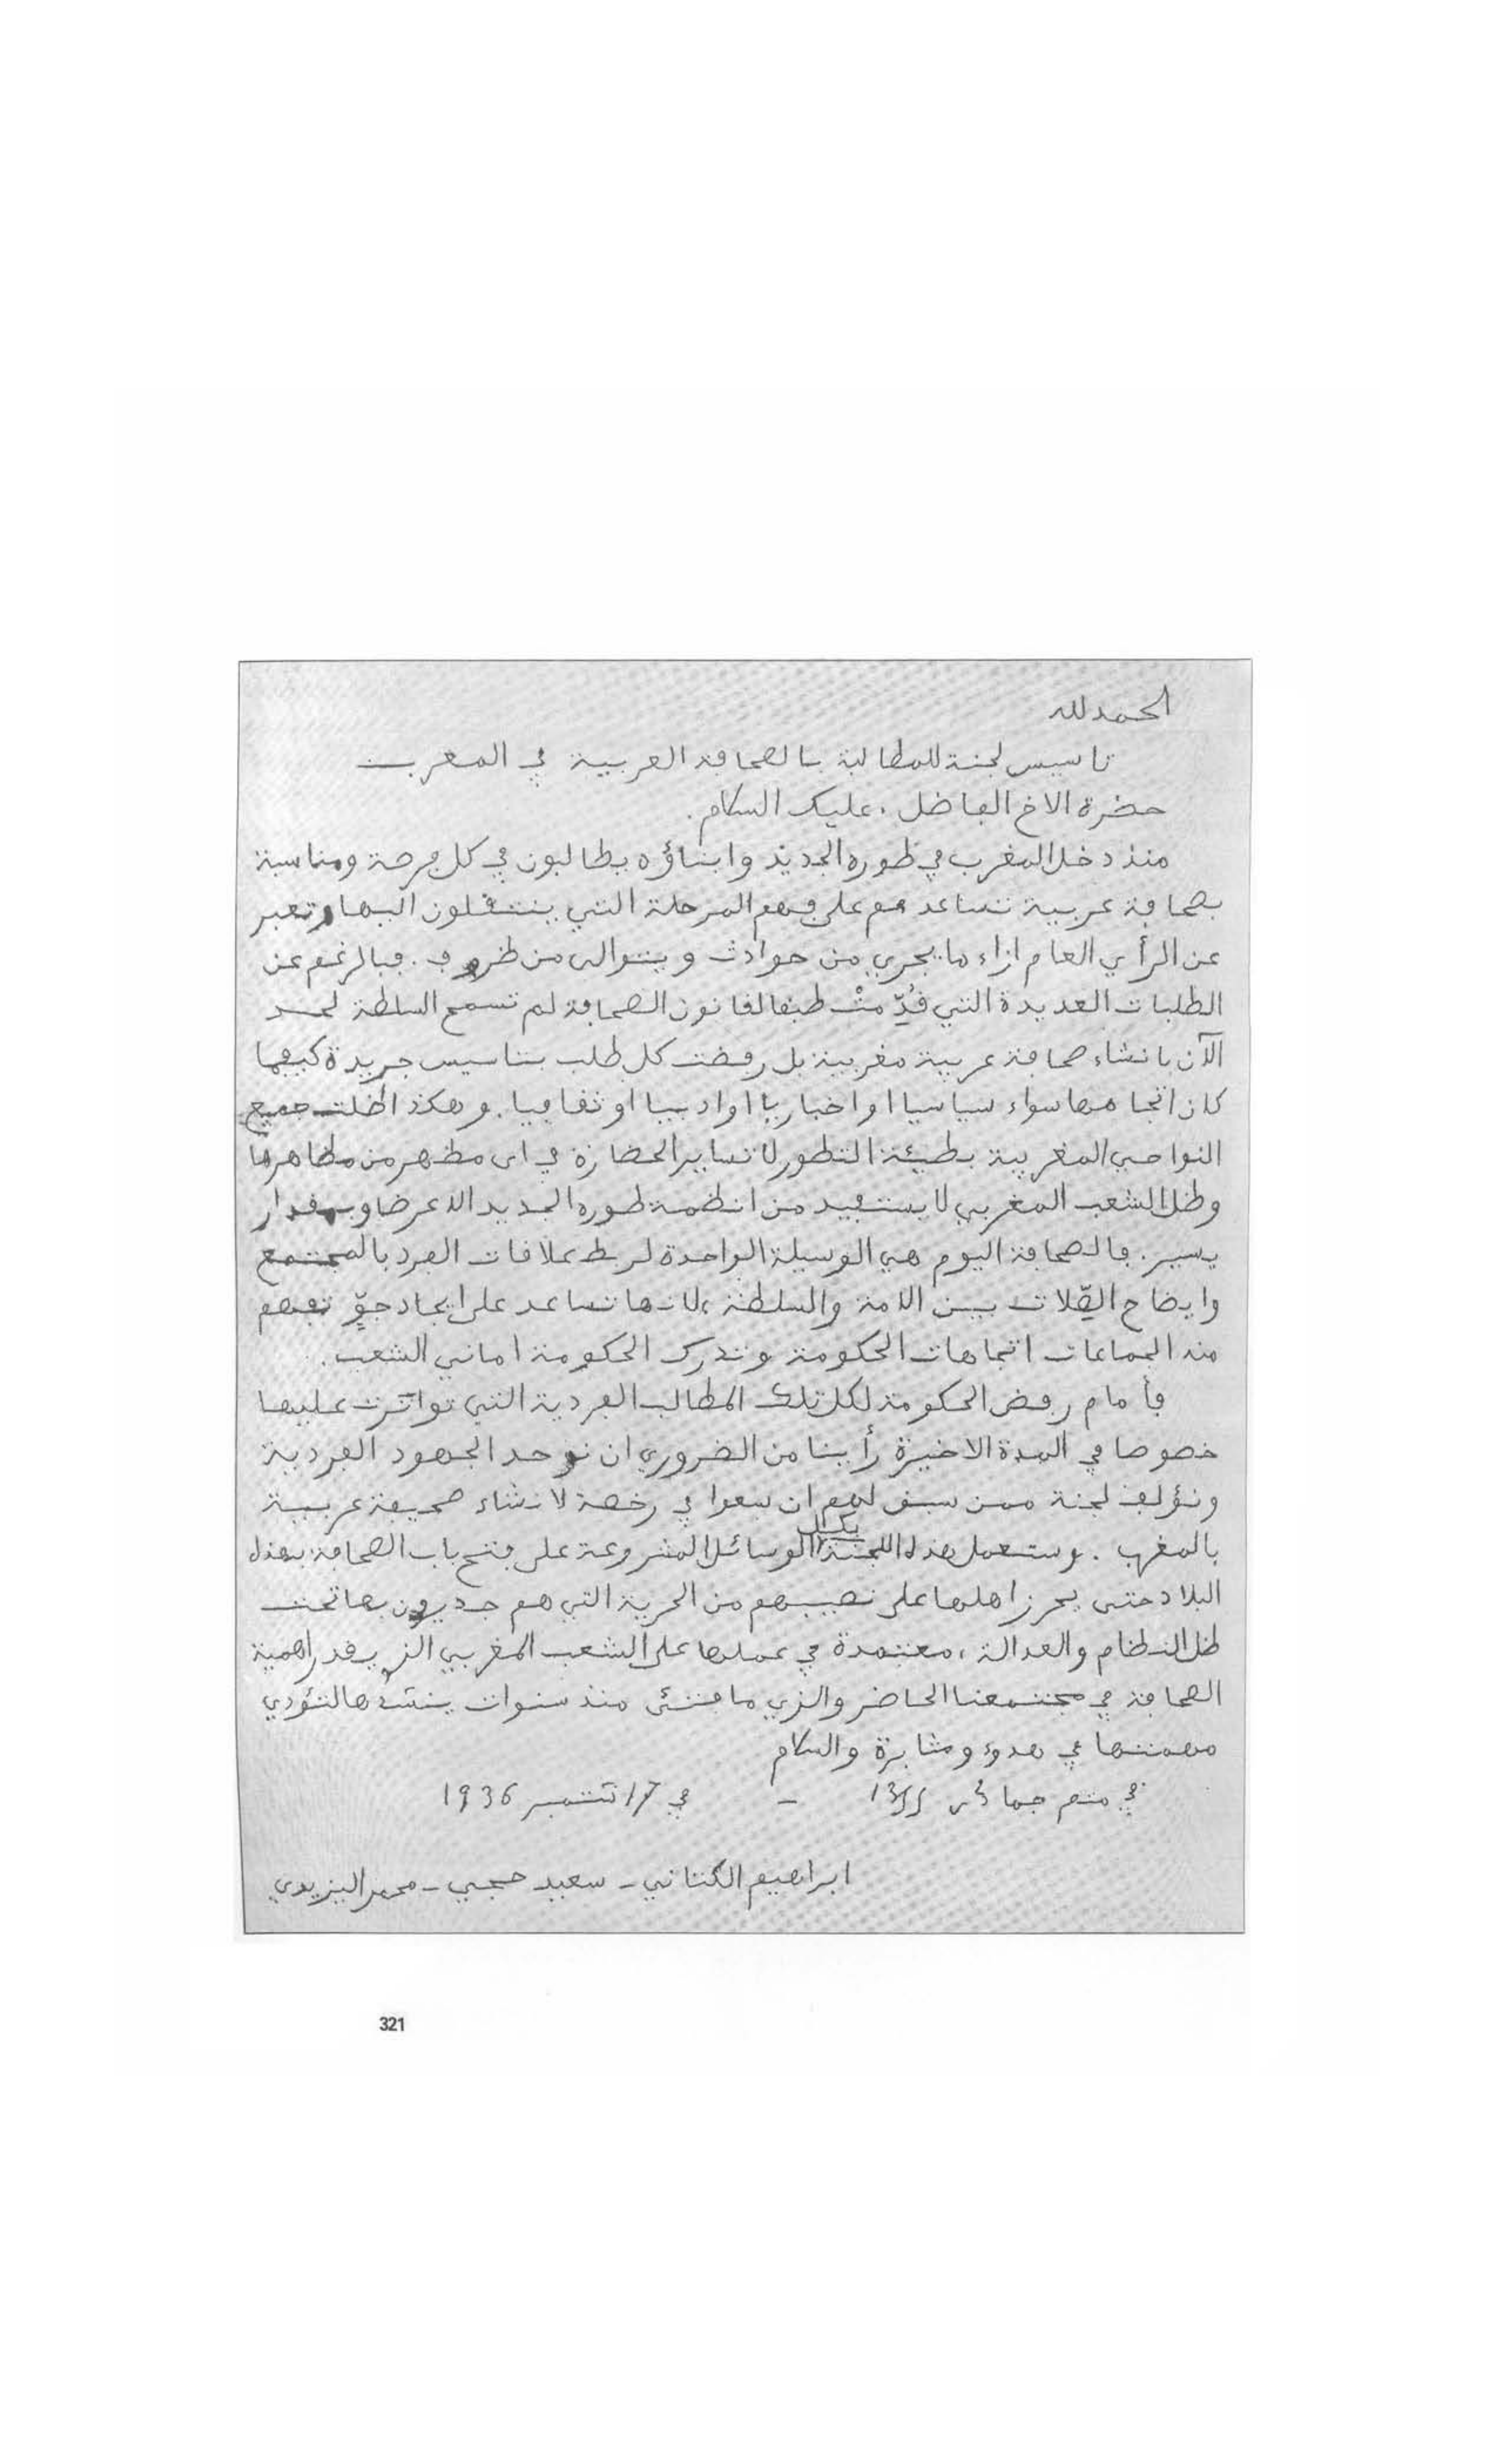 الحمد لله
تاسيس لجنة للمطالبة بالصحافة العربية في المغرب
حضرة الاخ الفاضل . عليك السلام .
منذ دخل المغرب في طوره الجديد وابناؤه يطالبون في كل فرصة ومناسبة
بصحافة عربية تساعدهم على فهم المرحلة التي ينتقلون اليها وتعبر
عن الرأي العام ازاء ما يجري من حوادث ويتوالى من ظروف . فبالرغم عن
الطلبات العديدة التي قُدِّمتْ طبقا لقانون الصحافة لم تسمح السلطة لحد
الآن بانشاء صحافة عربية مغربية بل رفضت كل طلب بتاسيس جريدة كيفما
كان اتجاهها سواء سياسيا او اخباريا او ادبيا او ثقافيا . وهكذا ظلت جميع
النواحي المغربية بطيئة التطور لا تساير الحضارة في اى مظهر من مظاهرها
وظل الشعب المغربي لا يستفيد من انظمة طوره الجديد الا عرضا وبمقدار
يسير . فالصحافة اليوم هي الوسيلة الواحدة لربط علاقات الفرد بالمجتمع
وايضاح الصّلات بين الامة والسلطة ، لانها تساعد على ايجاد جوّ تفهم
منه الجماعات اتجاهات الحكومة وتدرك الحكومة اماني الشعب .
فأمام رفض الحكومة لكل تلك المطالب الفردية التي تواترت عليها
خصوصا في المدة الاخيرة رأينا من الضروري ان نوحد الجهود الفردية
ونؤلف لجنة ممن سبق لهم ان سعوا في رخصة لانشاء صحيفة عربية
بالمغرب . وستعمل هذه اللجنة بكل الوسائل المشروعة على فتح باب الصحافة بهذه
البلاد حتى يحرز اهلها على نصيبهم من الحرية التي هم جديرون بها تحت
ظل النظام والعدالة ، معتمدة في عملها على الشعب المغربي الذي يقدر اهمية
الصحافة في مجتمعنا الحاضر والذي ما فتئ منذ سنوات ينشدها لتؤدي
مهمتها في هدوء ومثابرة والسلام
في متم جمادى 1355 - في 17 شتمبر 1936
ابراهيم الكتاني - سعيد حجي - محمد اليزيدي
321